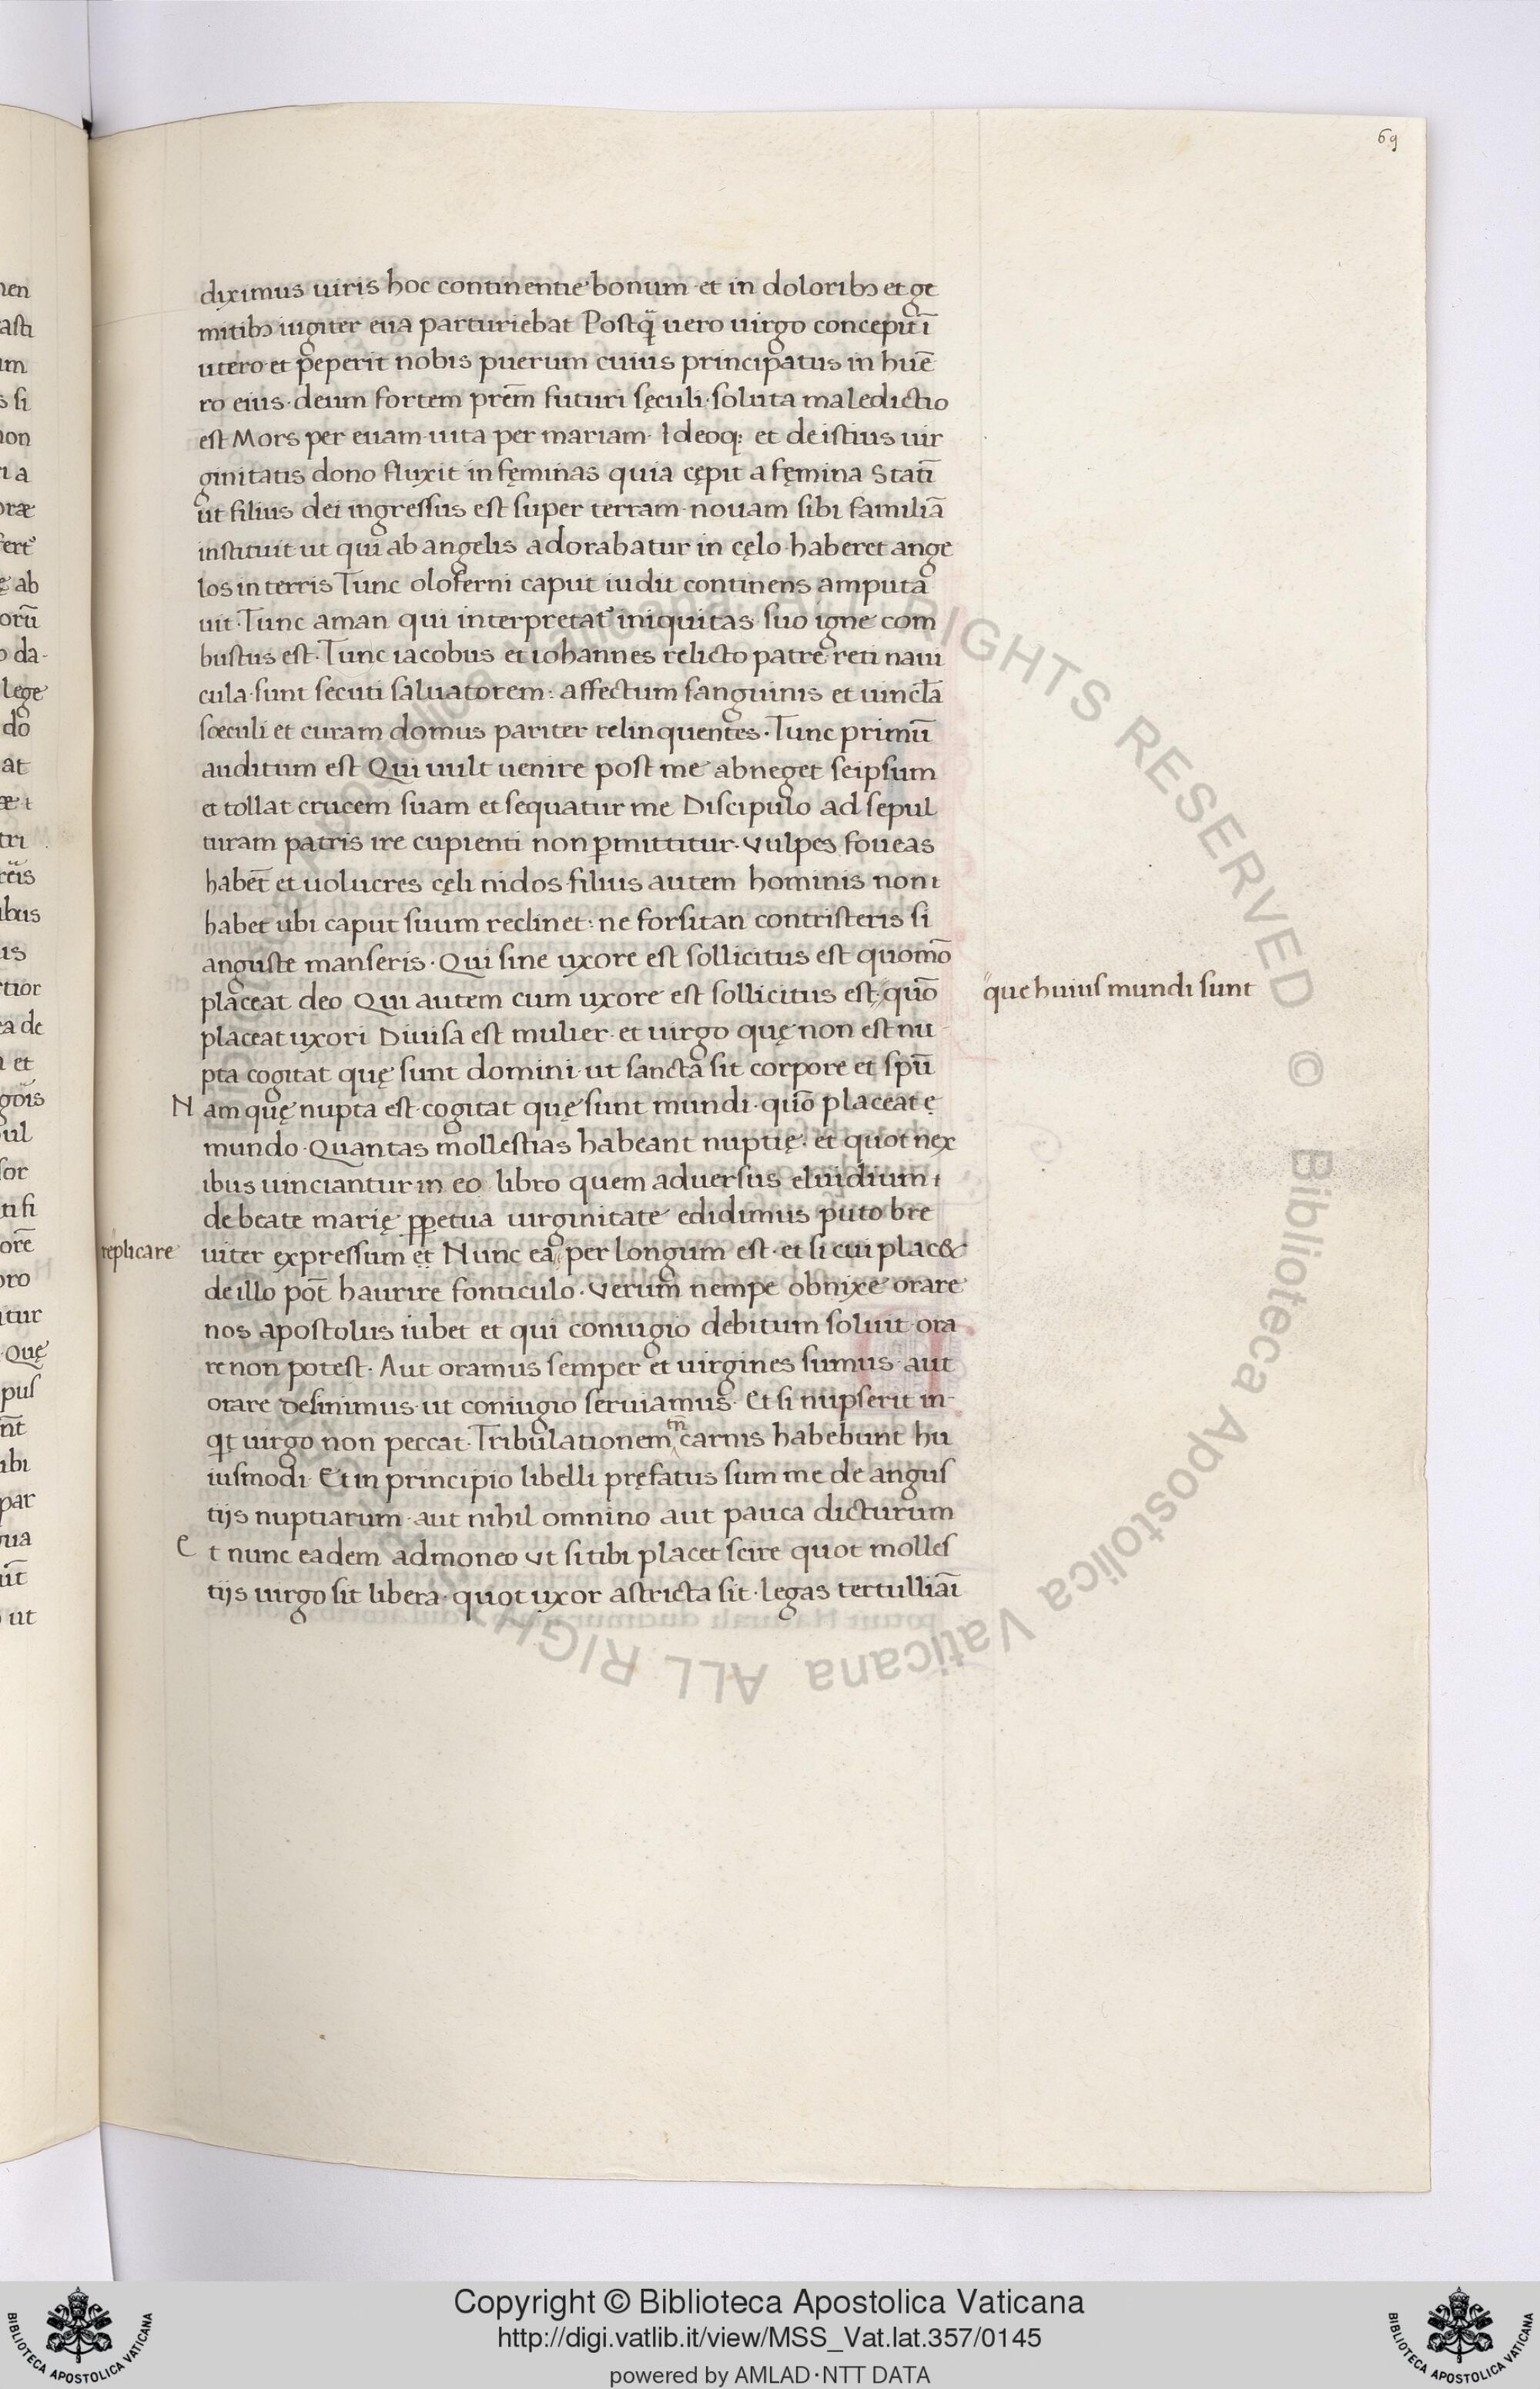 69
diximus uiris hoc continentie bonum· et in doloribꝫ et ge
mitibꝫ iugiter eua parturiebat Postq̃ uero uirgo concepit ī
utero· et peperit nobis puerum cuius principatus in humē
ro eius· deum fortem prēm futuri sęculi· soluta maledictio
est Mors per euam· uita per mariam· Ideoq; et de istius uir
ginitatis dono fluxit in fęminas quia cępit a fęmina Statī
ut filius dei ingressus est super terram· nouam sibi familiā
instituit ut qui ab angelis adorabatur in cęlo· haberet ange
los in terris Tunc oloferni caput iudit continens amputa
uit· Tunc aman qui interpretat᷑ iniquitas· suo igne com
bustus est· Tunc iacobus et iohannes relicto patre· reti naui
cula· sunt secuti saluatorem: affectum sanguinis et uincla
sœculi et curam domus pariter relinquentes· Tunc primū
auditum est Qui uult uenire post me abneget seipsum
et tollat crucem suam et sequatur me Discipulo ad sepul
turam patris ire cupienti non ꝑmittitur· Vulpes foueas
habēt et uolucres cęli nidos· filius autem hominis non
habet ubi caput suum reclinet: ne forsitan contristeris si
anguste manseris· Qui sine uxore est sollicitus est quomō
placeat deo Qui autem cum uxore est sollicitus est· quō
que huius mundi sunt
placeat uxori Diuisa est mulier· et uirgo quę non est nu
pta cogitat quę sunt domini· ut sancta sit corpore et spū
Nam quę nupta est· cogitat quę sunt mundi· quō placeat ę
mundo· Quantas mollestias habeant nuptię· et quot nex
ibus uinciantur in eo libro quem aduersus eluidium
de beate marię ꝑpetua uirginitate edidimus puto bre
replicare
uiter expressum et Nunc ea per longum est· et si cui plac&
de illo pōt haurire fonticulo· Verum nempe obnixe orare
nos apostolus iubet et qui coniugio debitum soluit· ora
re non potest· Aut oramus semper et uirgines sumus· aut
orare desinimus· ut coniugio seruiamus· Et si nupserit in
qt uirgo non peccat· Tribulationem tn̄ carnis habebunt hu
iusmodi· Et in principio libelli pręfatus sum me de angus
tijs nuptiarum· aut nihil omnino aut pauca dicturum
Et nunc eadem admoneo Vt si tibi placet scire quot molles
tijs uirgo sit libera· quot uxor astricta sit· legas tertulliāi
Copyright © Biblioteca Apostolica Vaticana
http://digi.vatlib.it/view/MSS_Vat.lat.357/0145
powered by AMLAD·NTT DATA
BIBLIOTECA APOSTOLICA VATICANA
BIBLIOTECA APOSTOLICA VATICANA